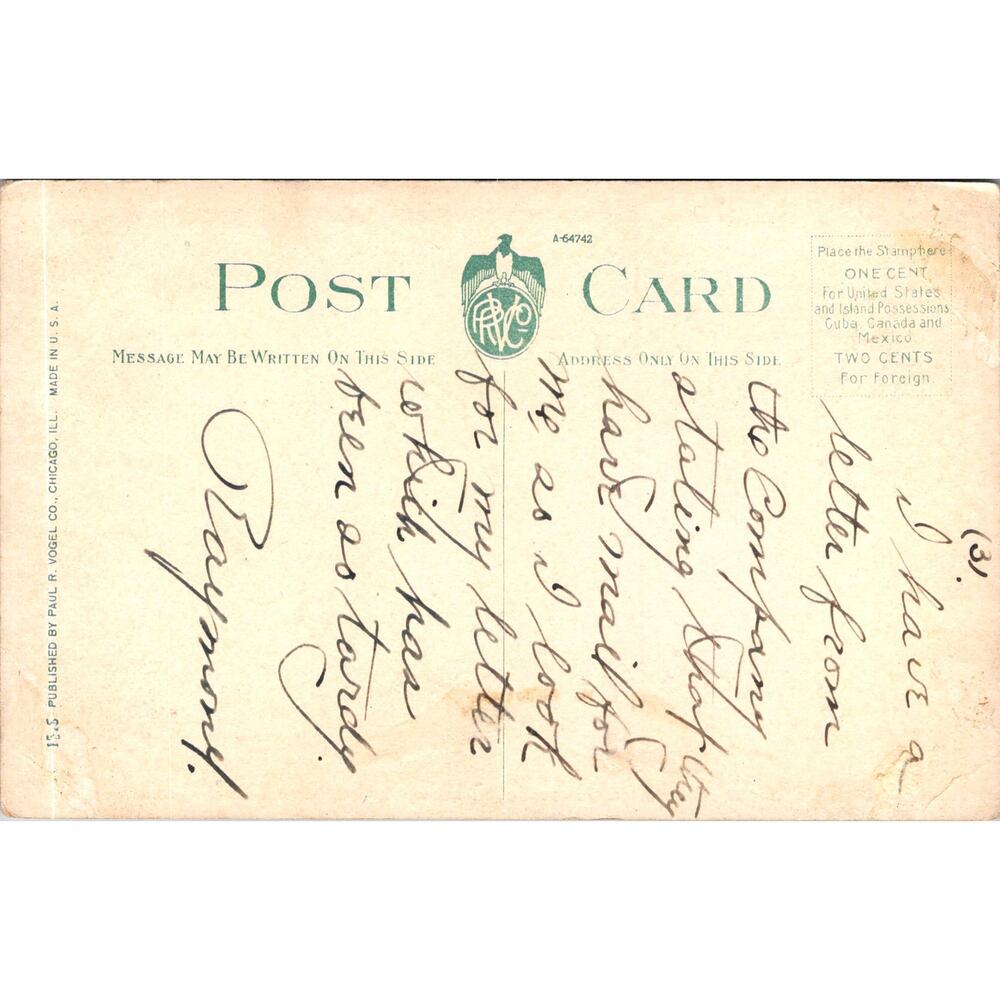 POST CARD
A-64742
PRVCo
MESSAGE MAY BE WRITTEN ON THIS SIDE
ADDRESS ONLY ON THIS SIDE
Place the Stamp here
ONE CENT
For United States
and Island Possessions
Cuba, Canada and
Mexico
TWO CENTS
For Foreign
PUBLISHED BY PAUL R. VOGEL CO., CHICAGO, ILL. MADE IN U. S. A.
(3)
I have a
letter from
the Company
stating that they
have mail for
me so I look
for my letter
which has
been so tardy.
Raymond.